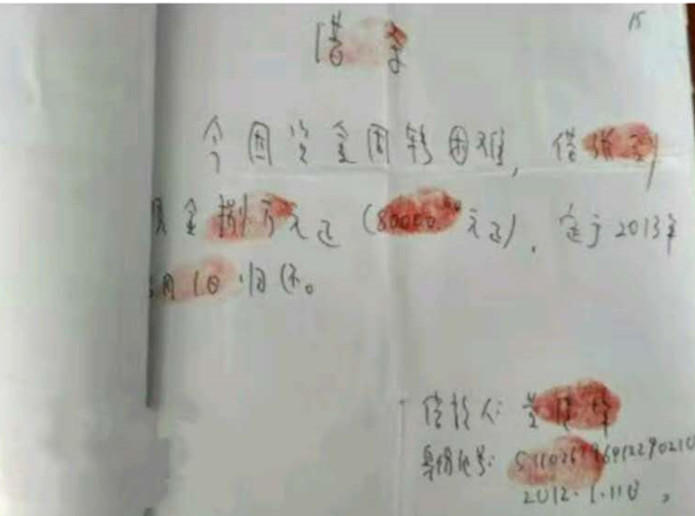 15
借条
今因资金周转困难，借
现金捌万元正（80000元正），定于2013年
月1日归还。
借款人：
身份证号：
2012.1.11日。